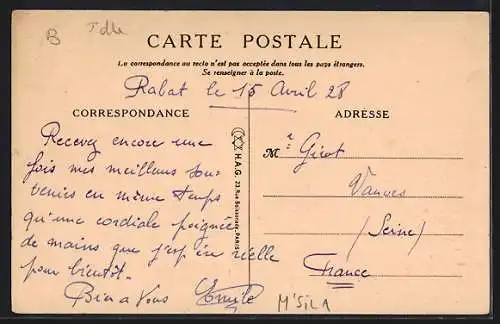 B
CARTE POSTALE
La correspondance au recto n'est pas acceptée dans tous les pays étrangers.
Se renseigner à la poste.
Rabat le 15 Avril 28
CORRESPONDANCE
ADRESSE
Recevez encore une
fois mes meilleurs sou-
venirs en même temps
qu'une cordiale poignée
de mains que j'esp
pour bientôt.
Bien a Vous Emile
H.A.G. 23, Rue Boissonade-PARIS
Mr Girot
Vanves
(Seine)
France
M'SILA